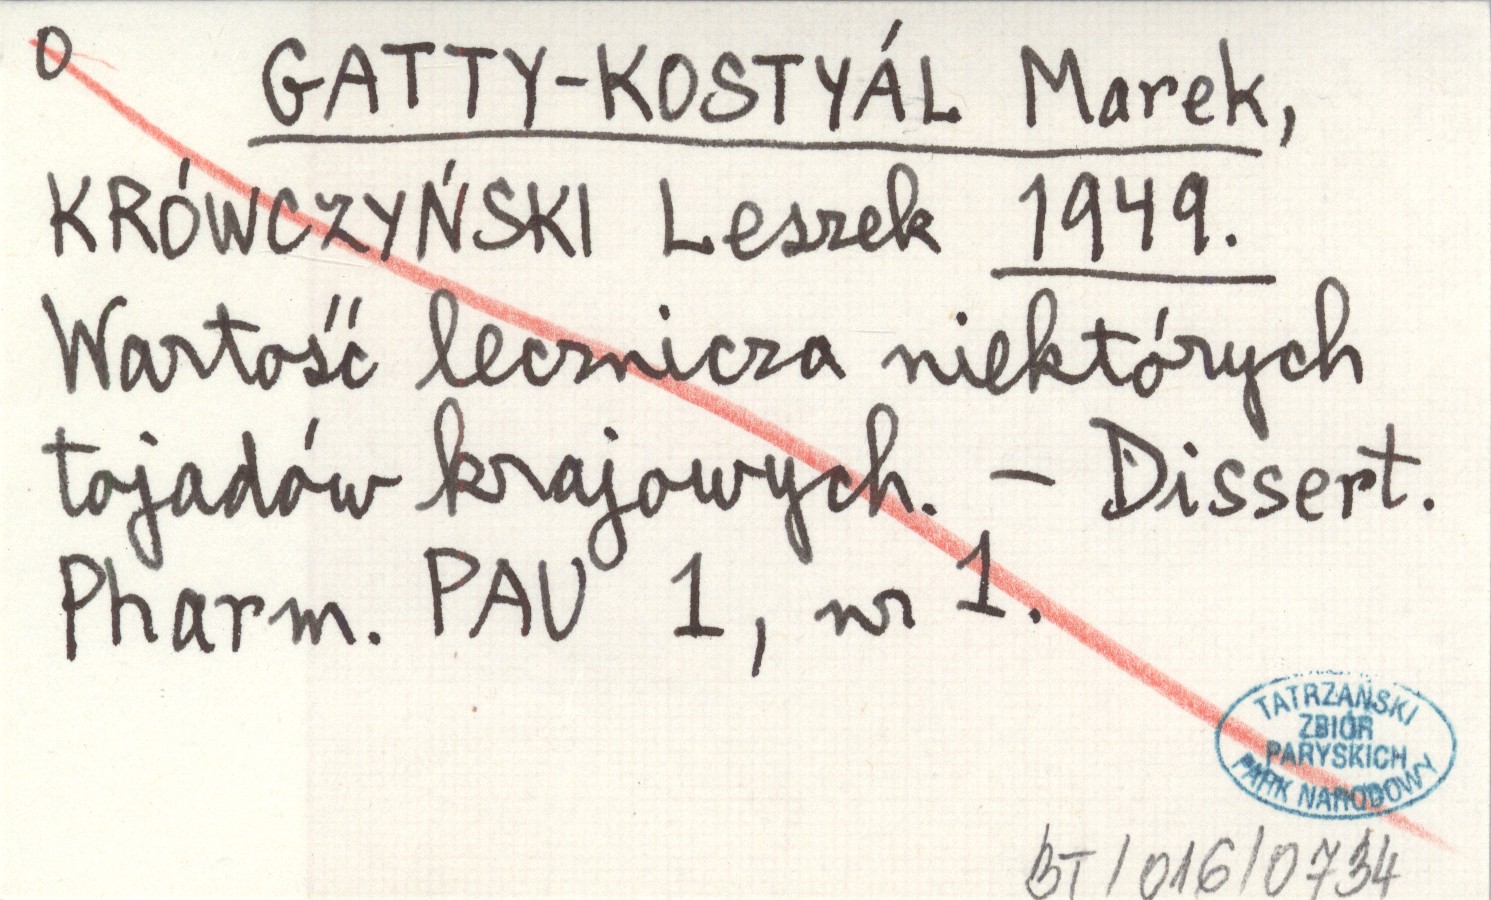 O GATTY-KOSTYÁL Marek,
KRÓWCZYŃSKI Leszek 1949.
Wartość lecznicza niektórych
tojadów krajowych. – Dissert.
Pharm. PAU 1, nr 1.
TATRZAŃSKI
ZBIÓR
PARYSKICH
PARK NARODOWY
BT/016/0734